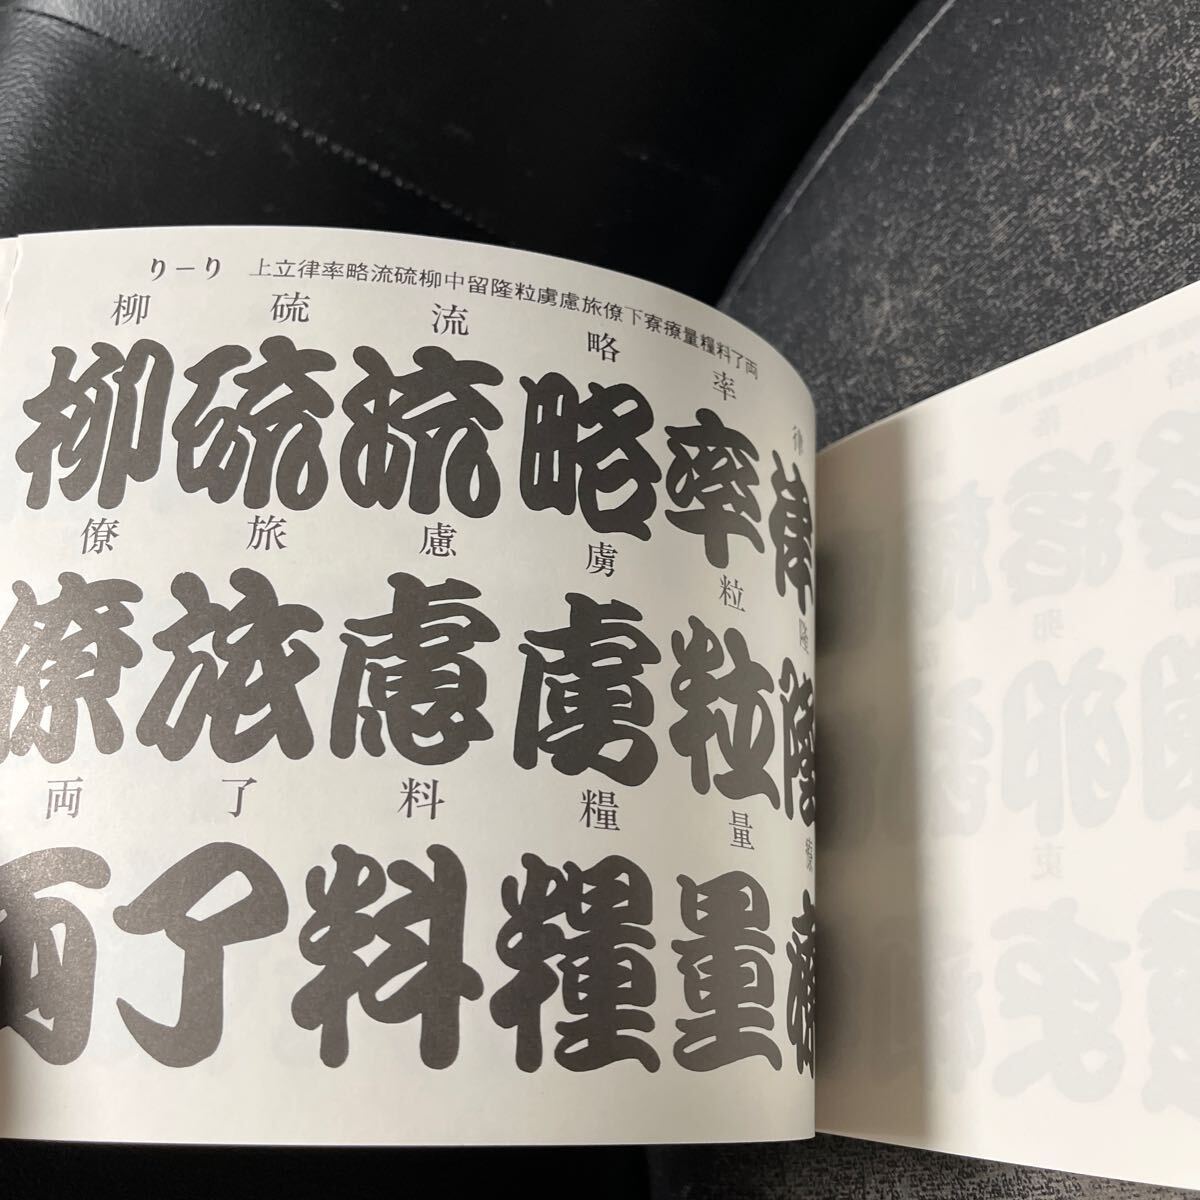 り－り　上立律率略流硫柳中留隆粒虜慮旅僚下寮療量糧料了両
柳　硫　流　略　率　律
柳　硫　流　略　率　律
僚　旅　慮　虜　粒　隆
僚　旅　慮　虜　粒　隆
両　了　料　糧　量　療
両　了　料　糧　量　療